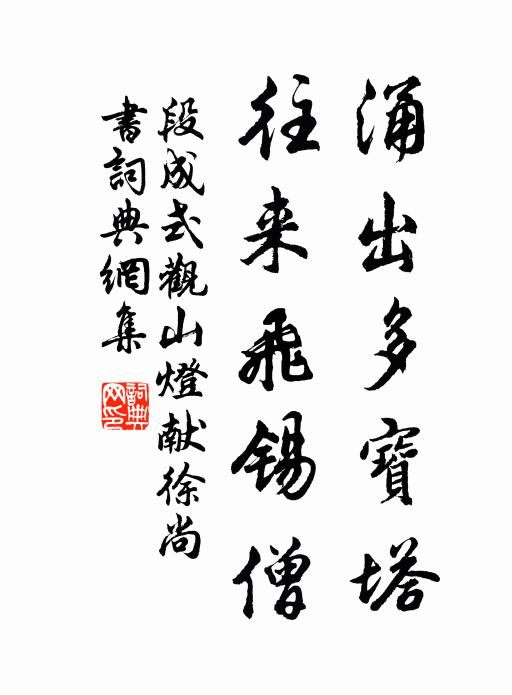 涌出多寶塔
往来飛錫僧
段成式觀山燈献徐尚
書詞典網集
詞典
网印